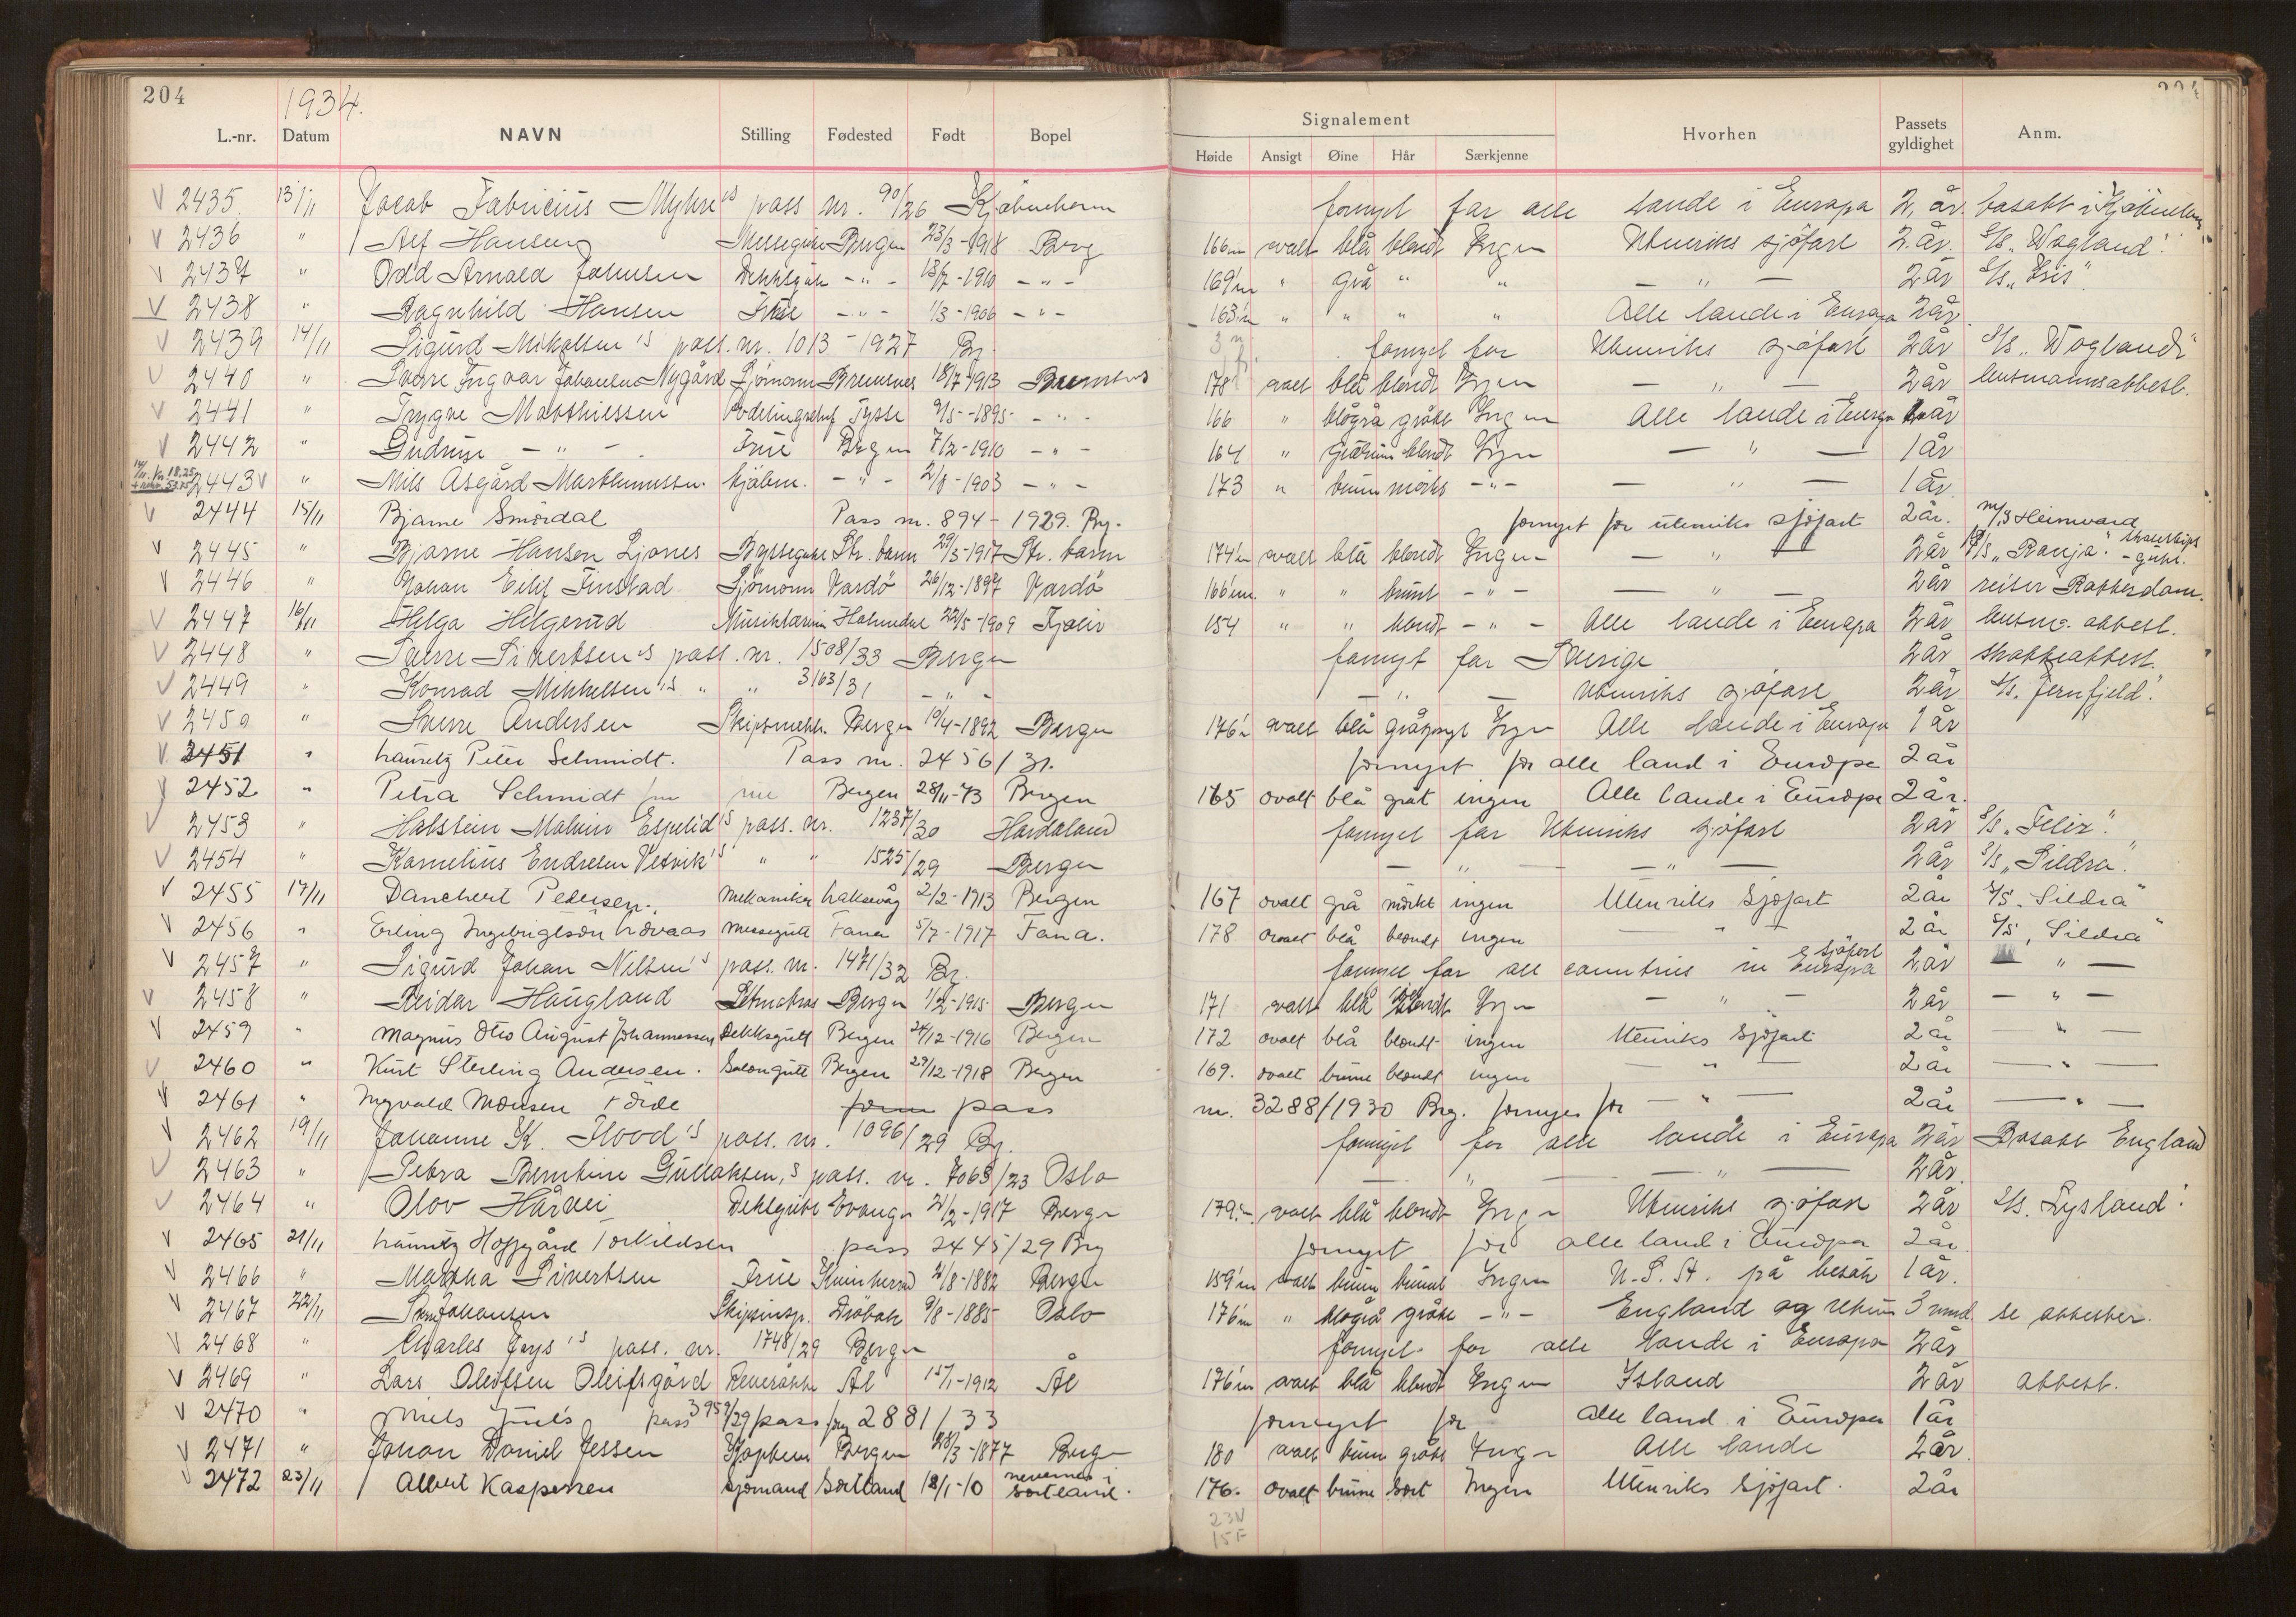 204
1934.
L.-nr. Datum NAVN Stilling Fødested Født Bopel
Signalement
Høide Ansigt Øine Hår Særkjenne Hvorhen Passets gyldighet Anm.
2435 13/11 Jacob Fabricius Myhre's pass nr. 90/26 Kjøbenhavn fornyet for alle lande i Europa 2 år. bosatt i Kjøbenhavn
2436 " Alf Hansen Messegutt Bergen 23/3-1918 Brg 166 cm ovalt blå blondt Ingen Utenriks sjøfart 2 år. S/S. "Wogland".
2437 " Odd Arnold Johnsen Dekksgutt -"- 13/7-1910 -"- 169 cm " grå " " — " — 2 år S/S. "Iris".
2438 " Ragnhild Hansen Frue -"- 1/3-1906 -"- 163 cm " " " " Alle lande i Europa 2 år
2439 14/11 Sigurd Mikalsen's pass. nr. 1013-1927 Br. fornyet for Utenriks sjøfart 2 år S/S. "Wogland"
2440 " Sverre Ingvar Johansen Nygård Sjømann Bremsnes 18/7-1913 Bremsnes 178 ovalt blå blondt Ingen — " — 2 år lensmannsattest.
2441 " Trygve Matthiessen Tysse 9/5-1895 -"- 166 " blågrå gråbl Ingen Alle lande i Europa 1 år
2442 " Gudrun -"- Frue Bergen 7/2-1910 -"- 164 " gråbrun blondt Ingen — " — 1 år
14/11. Kr. 18.25 2443 " Nils Asgård Marthinussen kjøbm. -"- 2/8-1903 -"- 173 " brun mørkt -"- — " — 1 år
2444 15/11 Bjarne Smørdal Pass nr. 894-1929. Brg. fornyet for utenriks sjøfart 2 år. M/S Heimvard
2445 " Bjarne Hansen Ljones Byssegutt Str. barm 29/3-1917 Str. barm 174 cm ovalt blå blondt Ingen — " — 2 år S/S "Ranja".
2446 " Johan Eilif Finstad Sjømann Vardø 26/12-1897 Vardø 166 cm. " " brunt -"- — " — 2 år reiser Rotterdam.
2447 16/11 Helga Helgerud Musiklærerin Holmedal 22/5-1909 Fjaler 154 " " blondt -"- Alle lande i Europa 2 år lensm. attest.
2448 " Sverre Sivertsen's pass. nr. 1508/33 Bergen fornyet for Sverige 2 år skatteattest.
2449 " Konrad Mikkelsen's " " 3163/31 -"- — " — Utenriks sjøfart 2 år S/S. "Jernfjeld".
2450 " Sverre Andersen Skipsmekl. Bergen 19/4-1892 Bergen 176 cm ovalt blå gråspr. Ingen Alle lande i Europa 1 år
2451 " Lauritz Peter Schmidt. Pass nr. 2456/31. fornyet for alle land i Europa 2 år
2452 " Petra Schmidt frue Bergen 28/11-73 Bergen 165 ovalt blå grått ingen Alle lande i Europa 2 år.
2453 " Halstein Malvin Espelid's pass. nr. 1237/30 Hordaland fornyet for Utenriks sjøfart 2 år S/S "Felix".
2454 " Kornelius Endresen Vesvik's " " 1525/29 Bergen — " — — " — 2 år S/S "Sildra".
2455 17/11 Danchert Pedersen. mekaniker Laksevåg 2/2-1913 Bergen 167 ovalt grå mørkt ingen Utenriks sjøfart 2 år S/S. "Sildra"
2456 " Erling Ingebrigtsen Løvaas Messegutt Fana 5/7-1917 Fana. 178 ovalt blå blondt ingen — " — 2 år S/S "Sildra"
2457 " Sigurd Johan Nilsen's pass. nr. 1471/32 Br. fornyet for all countries in Europa sjøfart 2 år " —
2458 " Reidar Haugland Letmatros Bergen 1/2-1915 Bergen 171 ovalt blå blondt Ingen — " — 2 år — " —
2459 " Magnus Otto August Johannessen Dekksgutt Bergen 24/12-1916 Bergen 172 ovalt blå blondt ingen Utenriks sjøfart 2 år — " —
2460 " Kurt Sterling Andersen. Salongutt Bergen 29/12-1918 Bergen 169. ovalt brune blondt ingen — " — 2 år — " —
2461 " Ingvald Monsen Førde pass nr. 3288/1930 Brg. fornyes for — " — 2 år — " —
2462 19/11 Johanne K. Flood's pass. nr. 1096/29 Br. fornyet for alle lande i Europa 2 år Bosatt England
2463 " Petra Berntine Gullaksen's pass. nr. 7063/23 Oslo — " — — " — 2 år.
2464 " Olov Hårvei Dekksgutt Evanger 21/2-1917 Bergen 179 cm. ovalt blå blondt Ingen Utenriks sjøfart 2 år S/S. "Lysland".
2465 21/11 Lauritz Hopsgård Torkildsen pass 2445/29 Brg fornyet for alle land i Europa 2 år.
2466 " Martha Sivertsen Frue Kvinherad 21/8-1882 Bergen 159 cm ovalt brun brunt Ingen U.S.A. på besøk 1 år.
2467 22/11 Johansen Skipsinsp. Drøbak 9/8-1885 Oslo 176 cm " blågrå gråbl -"- England og 3 mnd se attester.
2468 " Charles Jays's pass. nr. 1748/29 Bergen fornyet for alle lande i Europa 2 år
2469 " Lars Oleifsen Oleifsgård Reverøkter Ål 15/1-1912 Ål 176 cm ovalt blå blondt Ingen Island 2 år attest.
2470 " Niels Juel's pass 3959/29 pass 2881/33 fornyet for alle land i Europa 1 år
2471 " Johan Daniel Jessen Bergen 28/3-1877 Bergen 180 ovalt brun gråbl Ingen Alle lande 2 år.
2472 23/11 Albert Kaspersen sjømand Sortland 18/1-10 i Sortland. 176. ovalt brune sort Ingen Utenriks sjøfart. 2 år
23N
15F